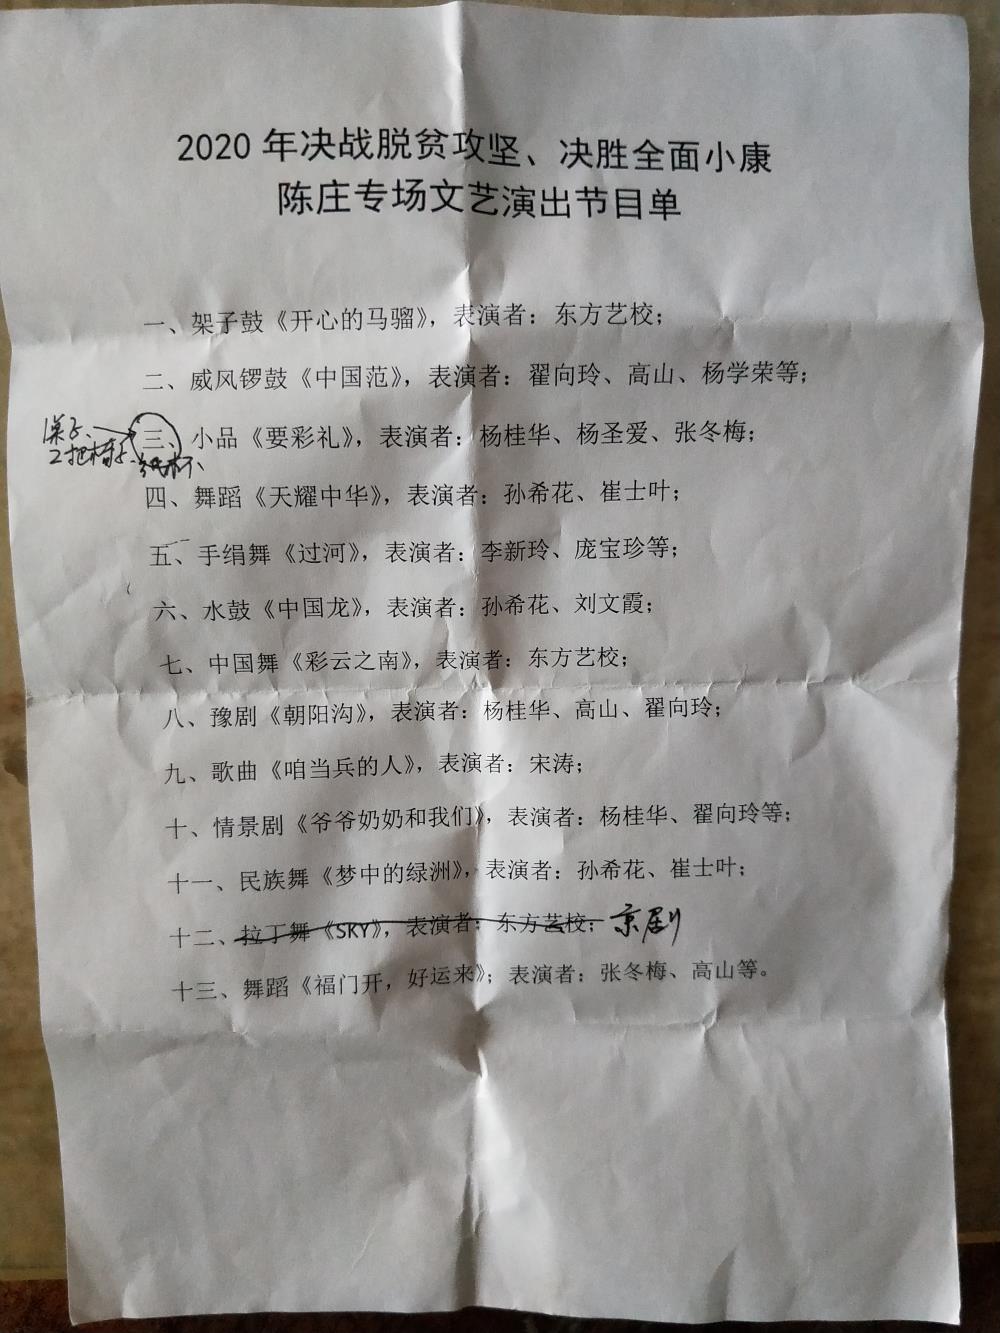 2020 年决战脱贫攻坚、决胜全面小康
陈庄专场文艺演出节目单
一、架子鼓《开心的马骝》，表演者：东方艺校；
二、威风锣鼓《中国范》，表演者：翟向玲、高山、杨学荣等；
1桌子、
三、小品《要彩礼》，表演者：杨桂华、杨圣爱、张冬梅；
2把椅子、纸杯、
四、舞蹈《天耀中华》，表演者：孙希花、崔士叶；
五、手绢舞《过河》，表演者：李新玲、庞宝珍等；
六、水鼓《中国龙》，表演者：孙希花、刘文霞；
七、中国舞《彩云之南》，表演者：东方艺校；
八、豫剧《朝阳沟》，表演者：杨桂华、高山、翟向玲；
九、歌曲《咱当兵的人》，表演者：宋涛；
十、情景剧《爷爷奶奶和我们》，表演者：杨桂华、翟向玲等；
十一、民族舞《梦中的绿洲》，表演者：孙希花、崔士叶；
十二、拉丁舞《SKY》，表演者：东方艺校；京剧
十三、舞蹈《福门开，好运来》；表演者：张冬梅、高山等。